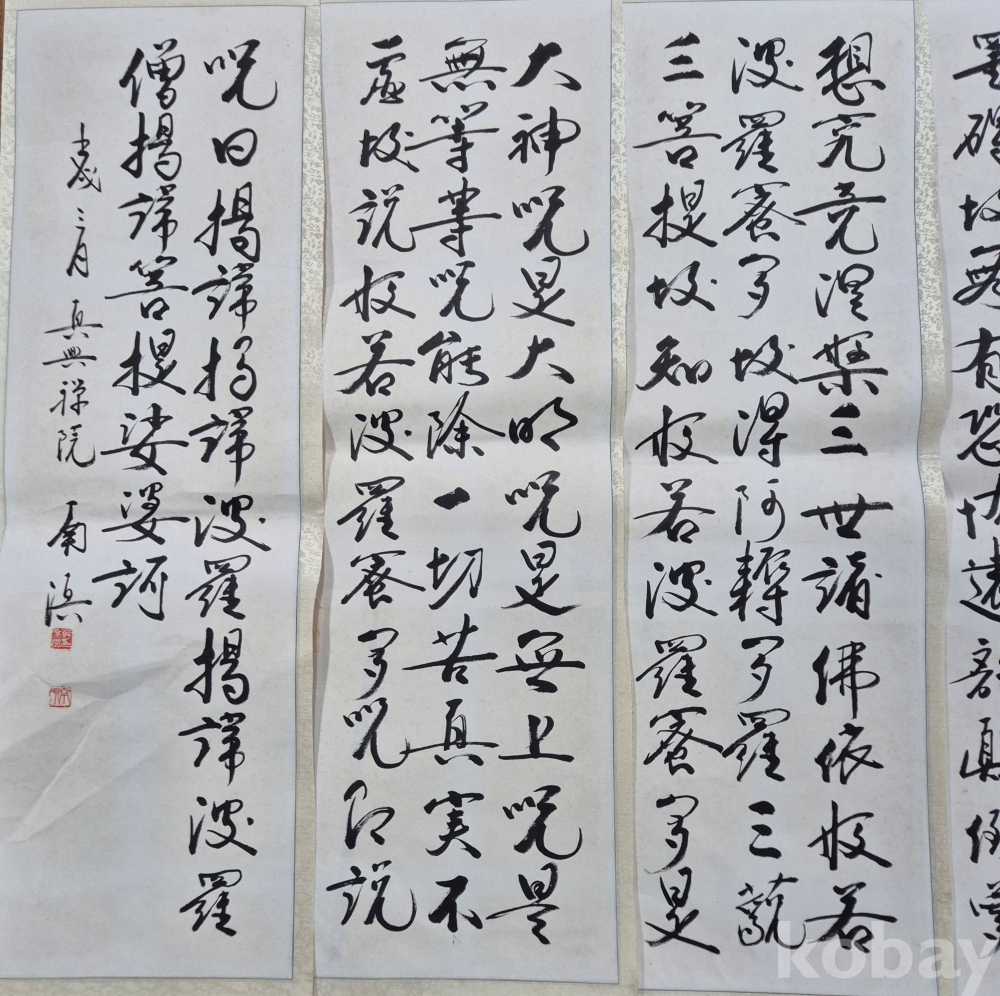 罣礙故無有恐怖遠離顛倒夢
想究竟涅槃三世諸佛依般若
波羅蜜多故得阿耨多羅三藐
三菩提故知般若波羅蜜多是
大神呪是大明呪是無上呪是
無等等呪能除一切苦真実不
虛故說般若波羅蜜多呪即說
呪曰揭諦揭諦波羅揭諦波羅
僧揭諦菩提娑婆訶
歲三月 真興禪院 南
kobay